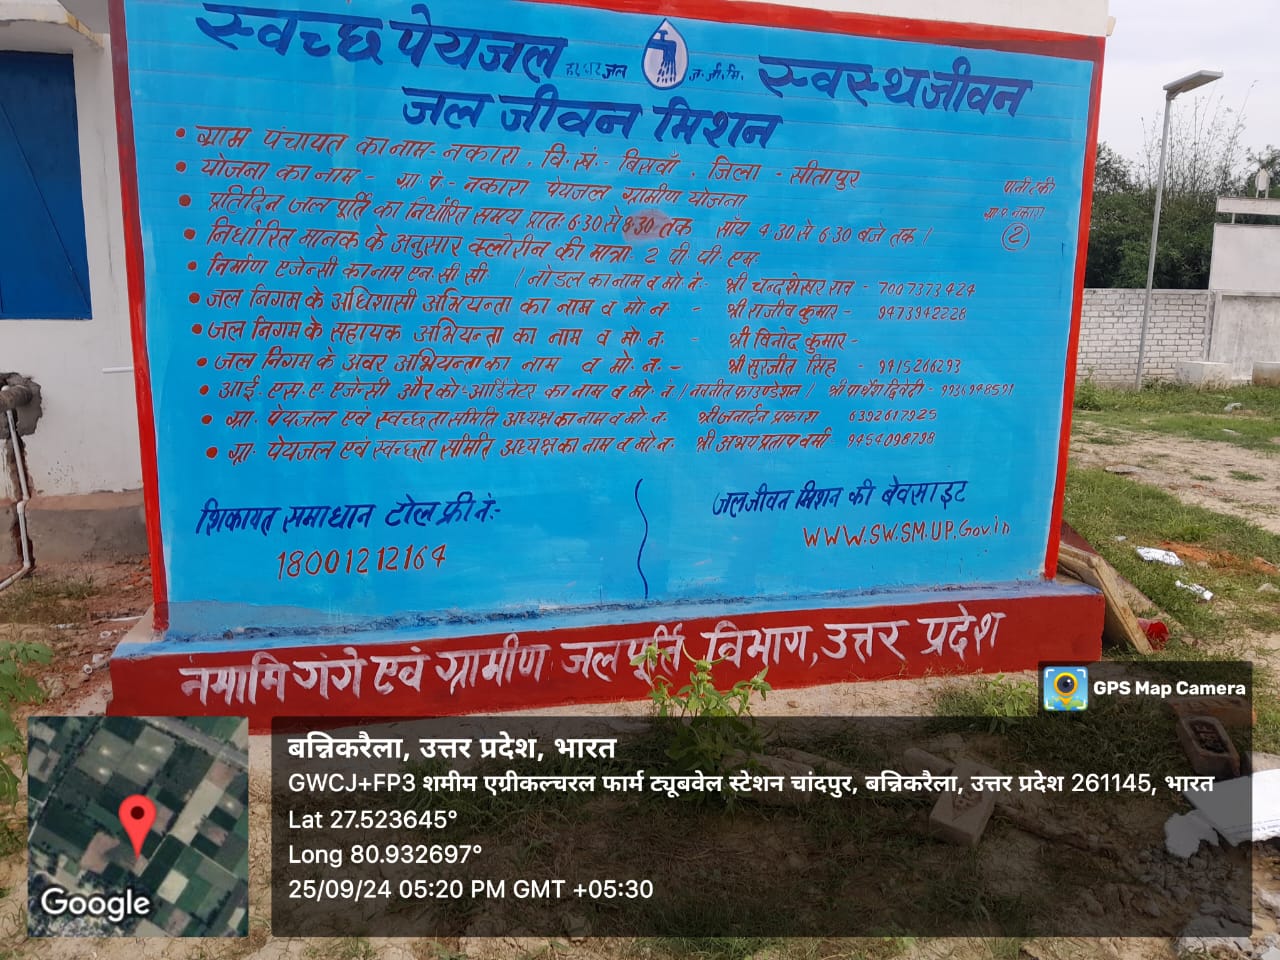 स्वच्छ पेयजल हर घर जल ज.जी.मि. स्वस्थ जीवन
जल जीवन मिशन
• ग्राम पंचायत का नाम - नकारा, वि.खं.- बिसवाँ, जिला - सीतापुर
• योजना का नाम - ग्रा.पं.- नकारा पेयजल ग्रामीण योजना
पानी टंकी
ग्रा.पं. नकारा
2
• प्रतिदिन जल पूर्ति का निर्धारित समय प्रातः 6:30 से 8:30 तक साँय 4:30 से 6:30 बजे तक।
• निर्धारित मानक के अनुसार क्लोरीन की मात्रा: 2 पी.पी.एम
• निर्माण एजेन्सी का नाम एन.सी.सी / नोडल का नाम व मो.नं: श्री चन्दशेखर राव - 7007373424
• जल निगम के अधिशासी अभियन्ता का नाम व मो.न. - श्री राजीव कुमार - 9473942228
• जल निगम के सहायक अभियन्ता का नाम व मो.न. - श्री विनोद कुमार -
• जल निगम के अवर अभियन्ता का नाम व मो.न. - श्री सुरजीत सिंह - 9915266293
• आई.एस.ए. एजेन्सी और को-आर्डिनेटर का नाम व मो.नं / नवनीत फाउण्डेशन / श्री पार्थेश द्विवेदी - 9936948591
• ग्रा. पेयजल एवं स्वच्छता समिति अध्यक्ष का नाम व मो.न. श्री जनार्दन प्रकाश 6392617925
• ग्रा. पेयजल एवं स्वच्छता समिति अध्यक्ष का नाम व मो.न. श्री अभय प्रताप वर्मा 9454098798
शिकायत समाधान टोल फ्री नं:-
18001212164
जल जीवन मिशन की बेवसाइट
WWW.SW.SM.UP.Gov.in
नमामि गंगे एवं ग्रामीण जल पूर्ति विभाग, उत्तर प्रदेश
GPS Map Camera
बन्निकरैला, उत्तर प्रदेश, भारत
GWCJ+FP3 शमीम एग्रीकल्चरल फार्म ट्यूबवेल स्टेशन चांदपुर, बन्निकरैला, उत्तर प्रदेश 261145, भारत
Lat 27.523645°
Long 80.932697°
25/09/24 05:20 PM GMT +05:30
Google